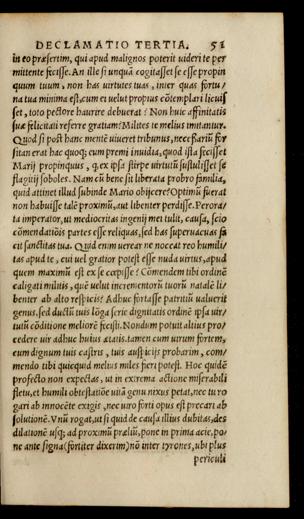 DECLAMATIO TERTIA. 51
in eo præsertim, qui apud malignos poterit uideri te per
mittente fecisse. An ille si unquā cogitasset se esse propin
quum tuum, non has uirtutes tuas, inter quas fortu/
na tua minima est, cum ei uelut propius cōtemplari licuis
set, toto pectore haurire debuerat? Non huic affinitatis
suæ felicitati referre gratiam? Milites te melius imitantur.
Quod si post hanc mentē uiueret tribunus, nec efiariū for
sitan erat hac quoq; cum premi inuidia, quod ista fecisset
Marij propinquus, q, ex ipsa stirpe uirtutū sustulisset se
flagitij soboles. Nam cū bene sit liberata probro familia,
quid attinet illud subinde Mario obijcere? Optimū fuerat
non habuisse talē proximū, aut libenter perdisse. Perora/
ta imperator, ut mediocritas ingenij mei tulit, causa, scio
cōmendatiōis partes esse reliquas, sed has superuacuas fa
cit sanctitas tua. Quid enim uerear ne noceat reo humili/
tas apud te, cui uel gratior potest esse nuda uirtus, apud
quem maximū est ex se cœpisse? Cōmendem tibi ordinē
caligati militis, quē uelut incrementorū tuorū natalē li/
benter ab alto respicis? Adhuc fortasse patritiū ualuerit
genus, sed ductū tuis lōga serie dignitatis ordinē ipsa uir/
tutū cōditione meliorē fecisti. Nondum potuit altius pro/
cedere uir adhuc huius ætatis. tamen cum uirum fortem,
cum dignum tuis castris, tuis auspicijs probarim, com/
mendo tibi quicquid melius miles fieri potest. Hoc quidē
profecto non expectas, ut in extrema actione miserabili
fletu, et humili obtestatiōe uitā genu nixus petat, nec tu ro
gari ab innocēte exigis, nec uiro forti opus est precari ab
solutionē. Vnū rogat, ut si quid de causa illius dubitas, des
dilationē usq; ad proximū præliū, pone in prima acie, po/
ne ante signa (fortiter dixerim) nō inter tyrones, ubi plus
periculi